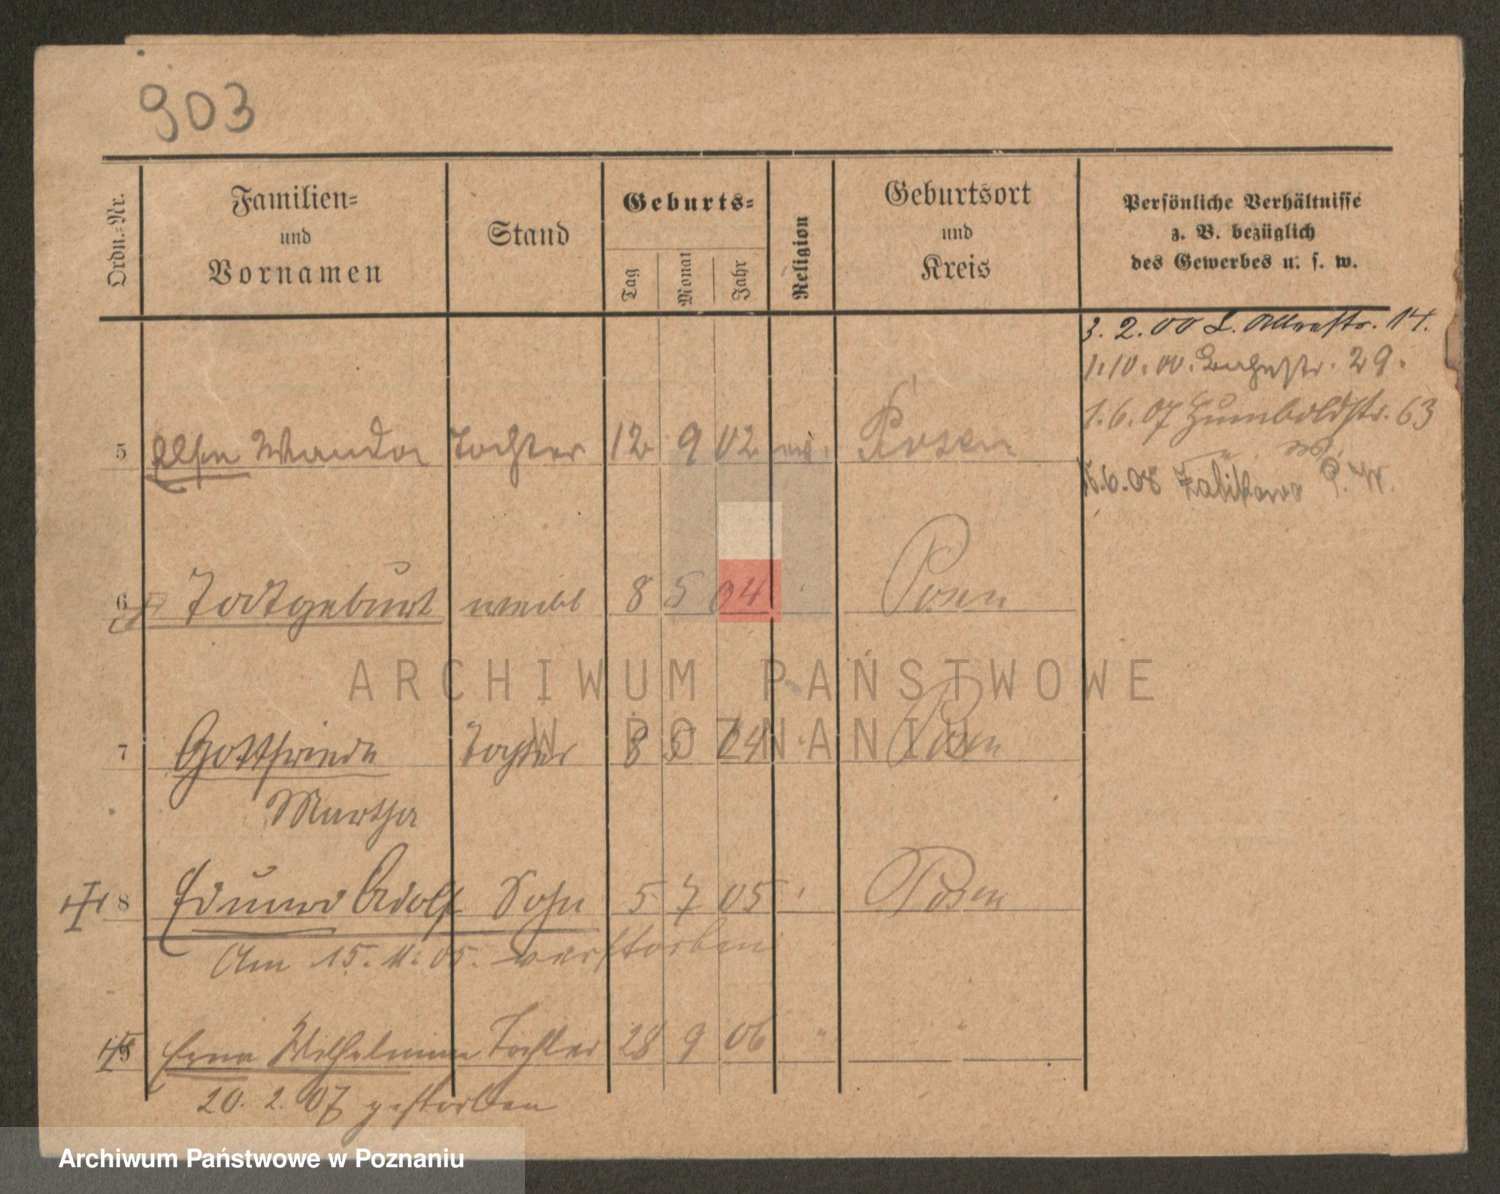 903
Ordn.-Nr.
Familien-
und
Vornamen
Stand
Geburts-
Tag
Monat
Jahr
Religion
Geburtsort
und
Kreis
Persönliche Verhältnisse
z. B. bezüglich
des Gewerbes u. s. w.
3. 2. 00 L. 14.
1. 10. 00. 29.
1. 6. 07 Humboldtstr. 63
15.6.08 Zabikowo P. W.
5 Wanda Tochter 12 9 02 ev. Posen
6 Todtgeburt weibl 8 5 04 Posen
7 Gottfriede Tochter 8 5 04 Posen
Martha
8 Eduard Adolf Sohn 5 7 05 Posen
Am 15. 11. 05. verstorben
9 Erna Wilhelmine Tochter 28 9 06 " "
20. 2. 07 gestorben
ARCHIWUM PAŃSTWOWE
W POZNANIU
Archiwum Państwowe w Poznaniu